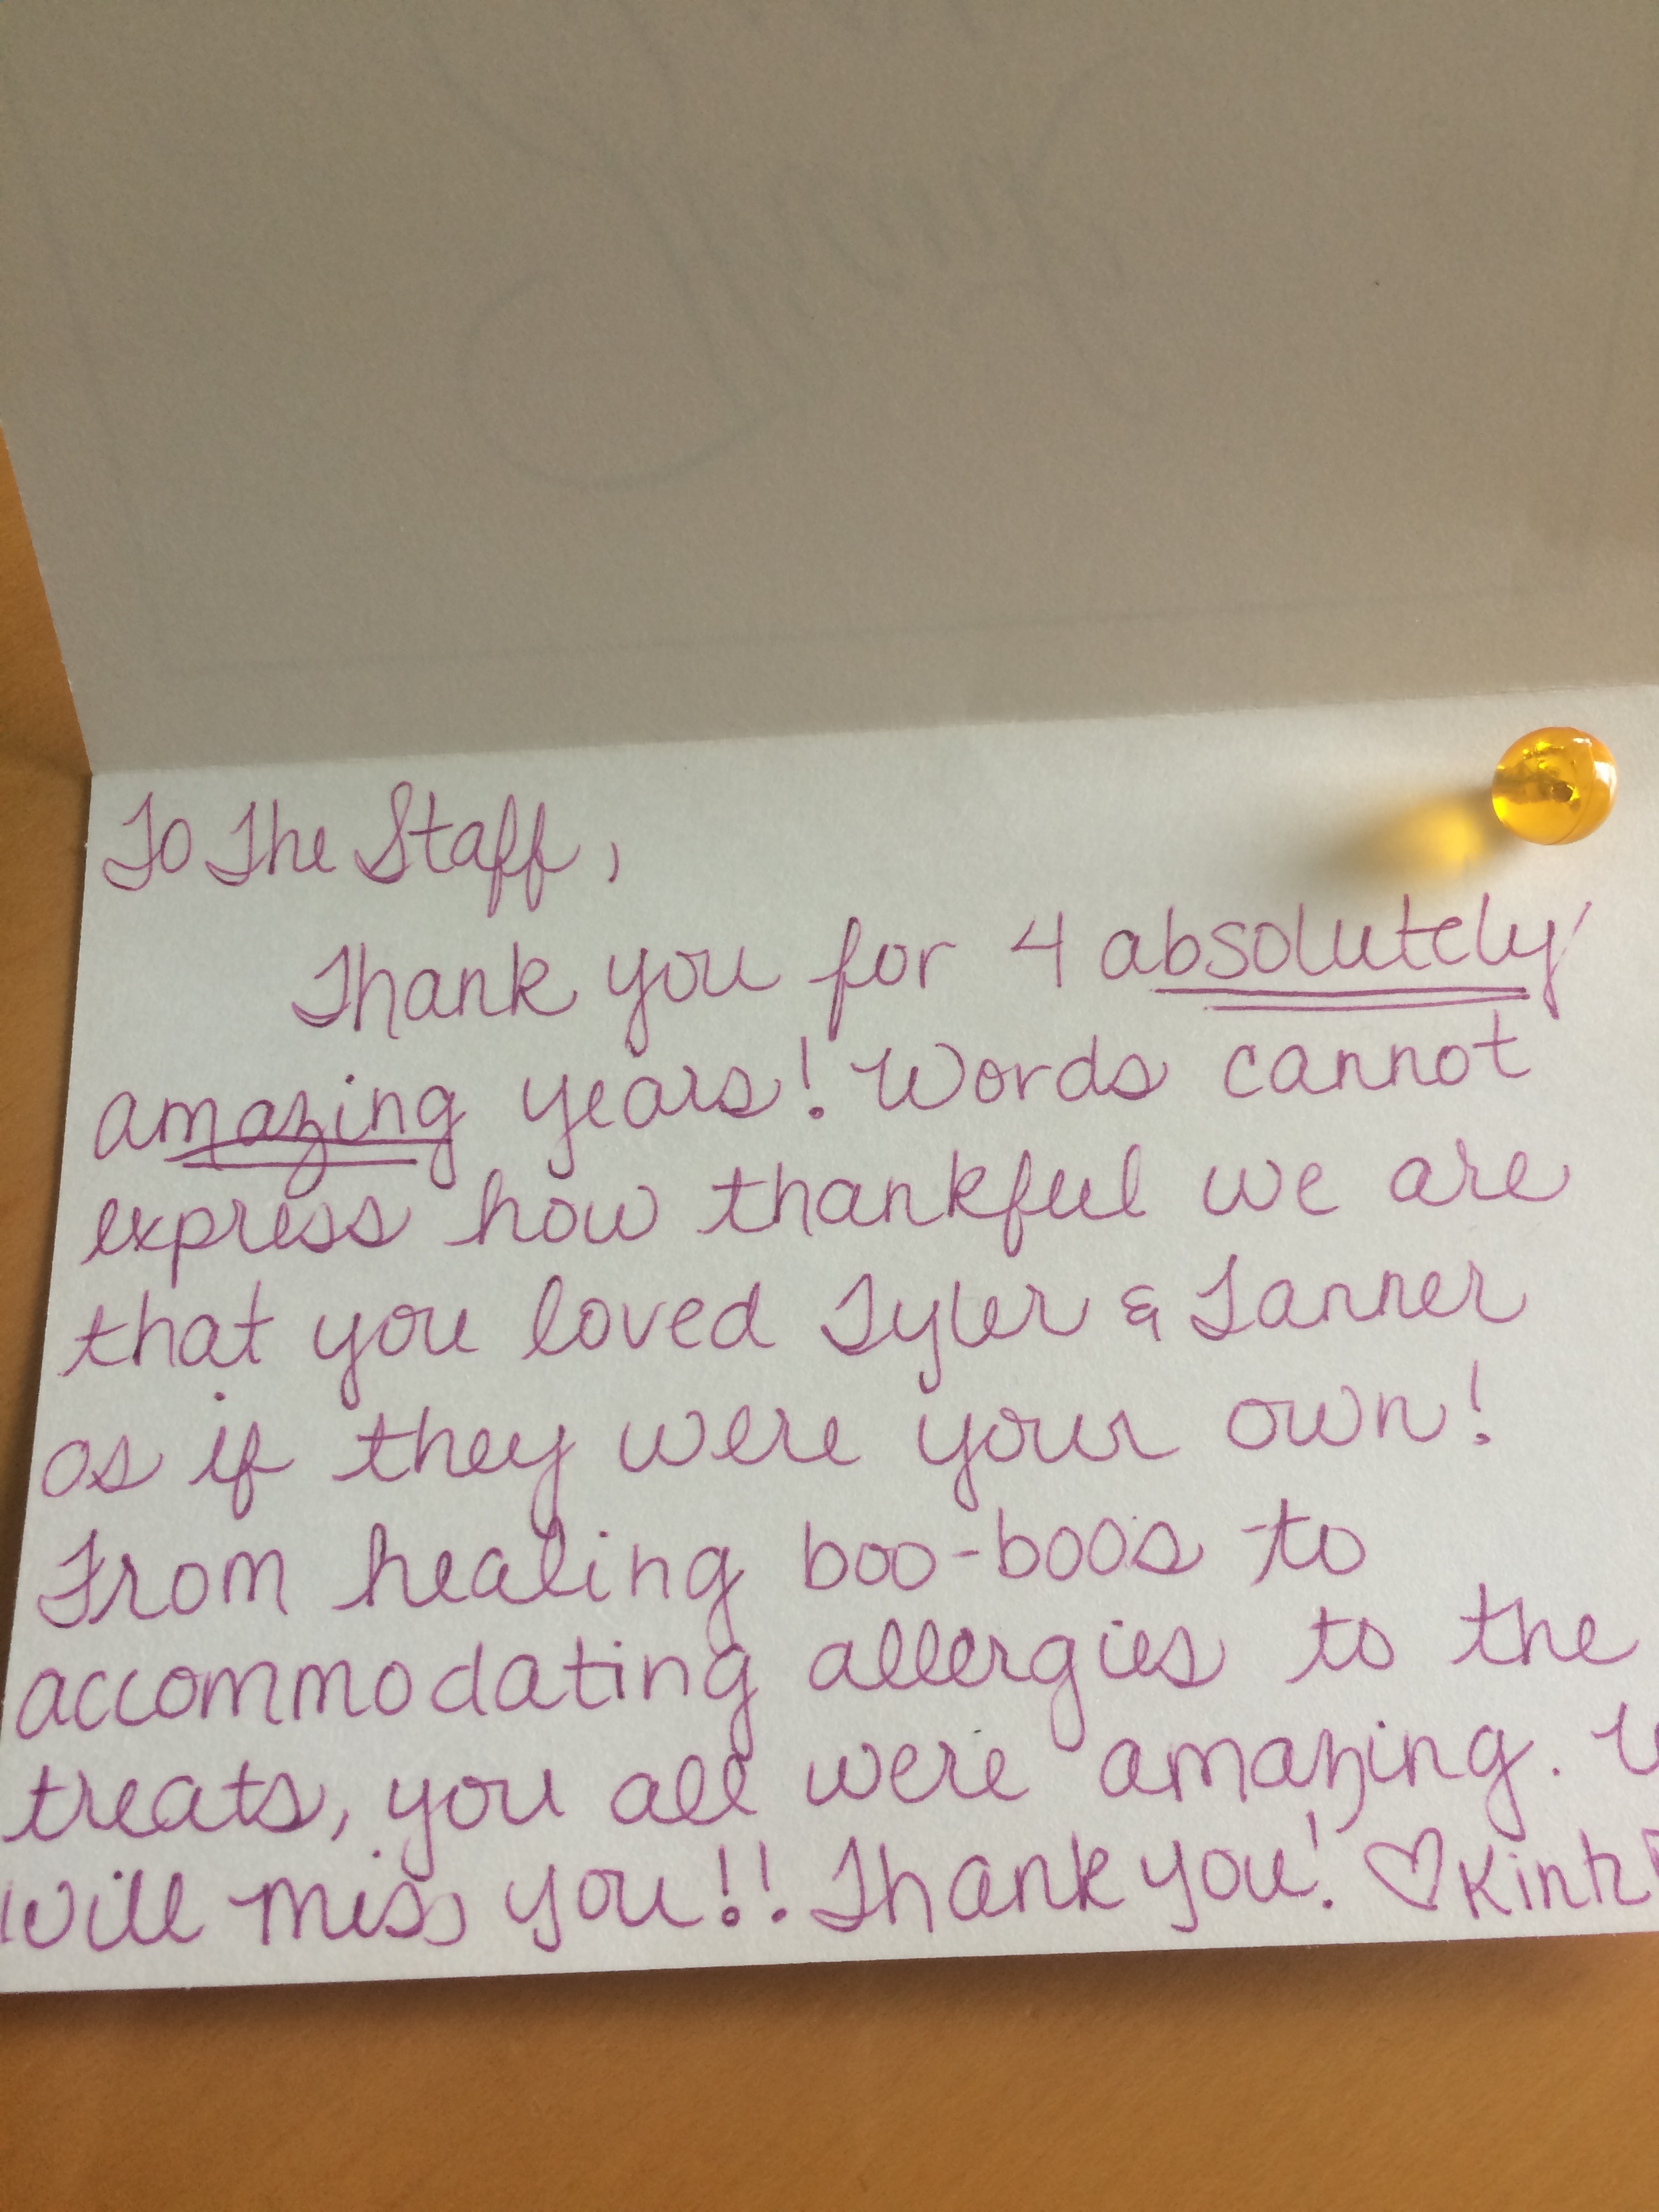 To The Staff,
Thank you for 4 absolutely
amazing years! Words cannot
express how thankful we are
that you loved Tyler & Tanner
as if they were your own!
From healing boo-boos to
accommodating allergies to the
treats, you all were amazing.
will miss you!! Thank you! ♡